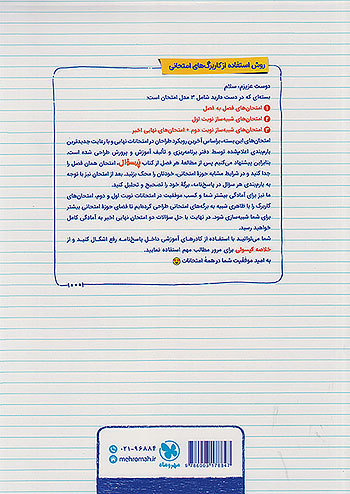 روش استفاده از کاربرگ‌های امتحانی
دوست عزیزم، سلام
بسته‌ای که در دست دارید شامل ۳ مدل امتحان است:
۱ امتحان‌های فصل به فصل
۲ امتحان‌های شبه‌ساز نوبت اول
۳ امتحان‌های شبه‌ساز نوبت دوم + امتحان‌های نهایی اخیر
امتحان‌های این بسته، براساس آخرین رویکرد طراحی در امتحانات نهایی و با رعایت جدیدترین
بارم‌بندی اعلام‌شده توسط دفتر برنامه‌ریزی و تألیف آموزش و پرورش طراحی شده است.
بنابراین پیشنهاد می‌کنیم پس از مطالعهٔ هر فصل از کتاب امتحان همان فصل را
جدا کنید و در شرایط مشابه حوزهٔ امتحانی، خودتان را محک بزنید. بعد از امتحان نیز با توجه
به بارم‌بندی هر سؤال در پاسخ‌نامه، برگهٔ خود را تصحیح و تحلیل کنید.
ما نیز برای آمادگی بیشتر شما و کسب موفقیت در امتحانات نوبت اول و دوم، امتحان‌های
کاربرگ را با ظاهری شبیه به برگه‌های امتحانی طراحی کرده‌ایم تا فضای حوزهٔ امتحانی بیشتر
برای شما شبیه‌سازی شود. در نهایت با حل سؤالات دو امتحان نهایی اخیر به آمادگی کامل
خواهید رسید.
شما می‌توانید با استفاده از کادرهای آموزشی داخل پاسخ‌نامه رفع اشکال کنید و از
خلاصه کپسولی برای مرور مطالب مهم استفاده نمایید.
به امید موفقیت شما در همهٔ امتحانات
۰۲۱-۹۶۸۸۴
mehromah.ir
مهروماه